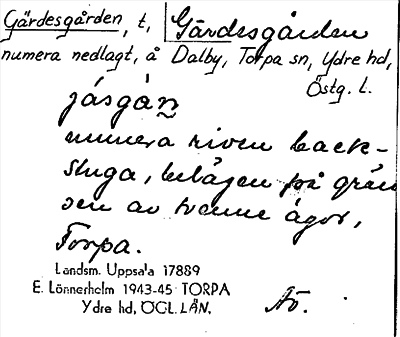 Gärdesgården, t, Gärdesgården
numera nedlagt, å Dalby, Torpa sn, Ydre hd,
Östg. l.
jásgán̰
numera riven back-
stuga, belägen på grän
sen av tvenne ägor,
Torpa.
Landsm. Uppsala 17889
E. Lönnerholm 1943-45 TORPA
Ydre hd, ÖGL. LÄN.